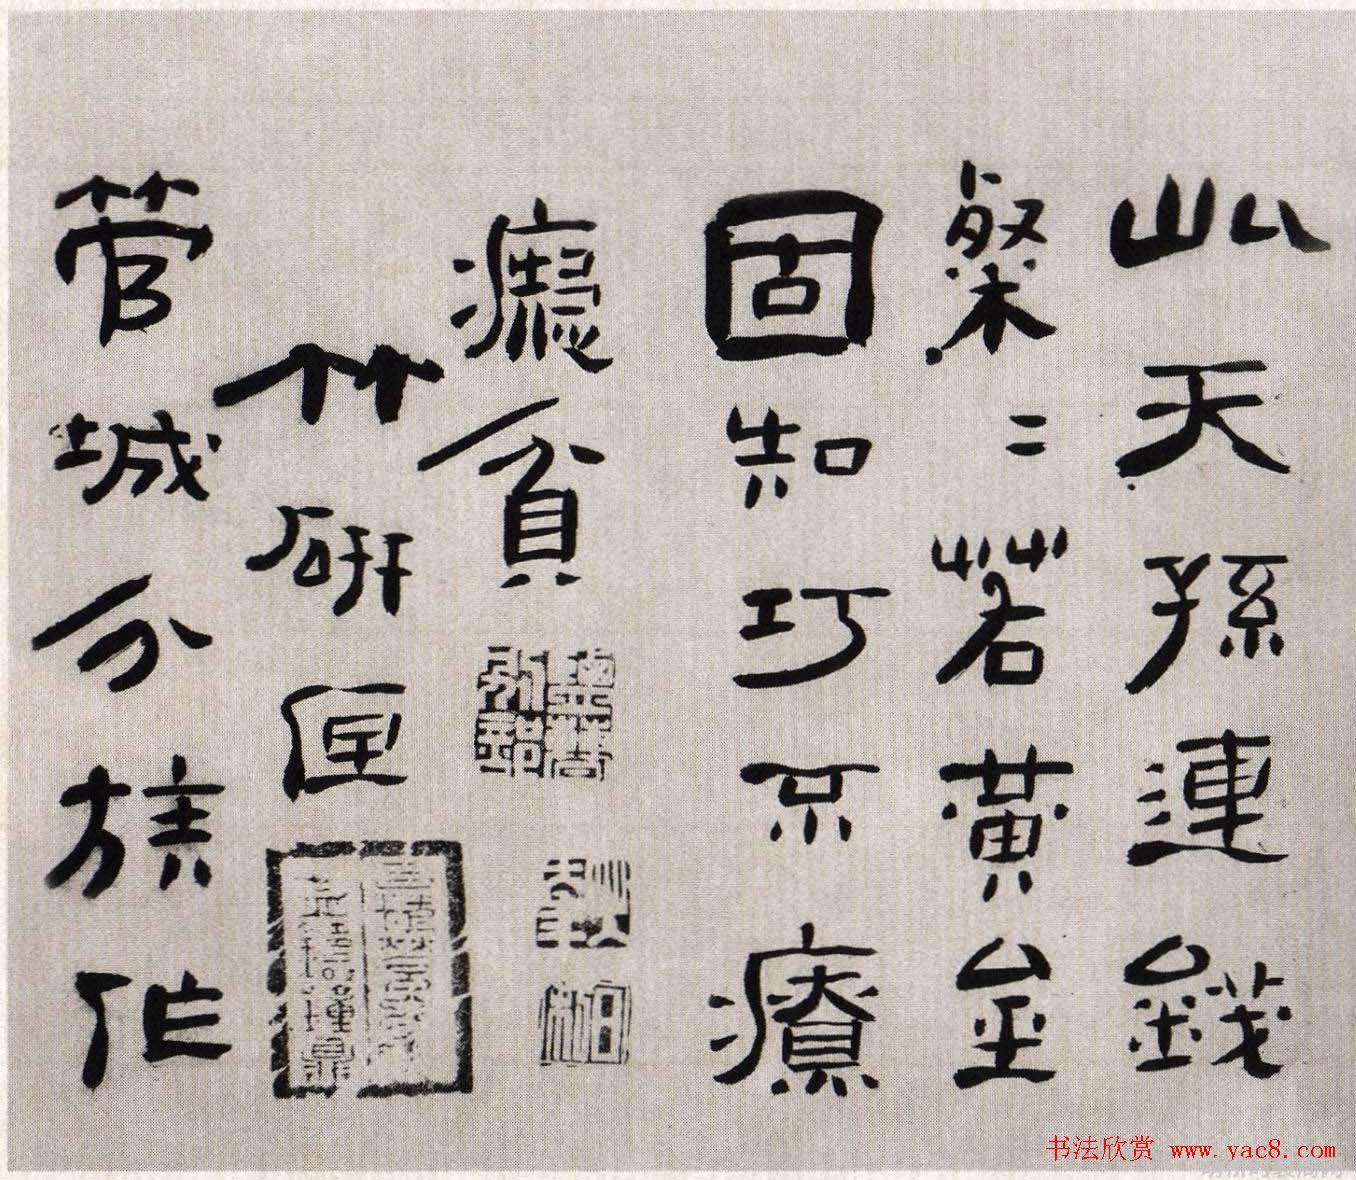 此天孫連錢
粲〻若黃金
固知巧不療
癡貧
竹研匣
管城分族作
书法欣赏 www.yac8.com